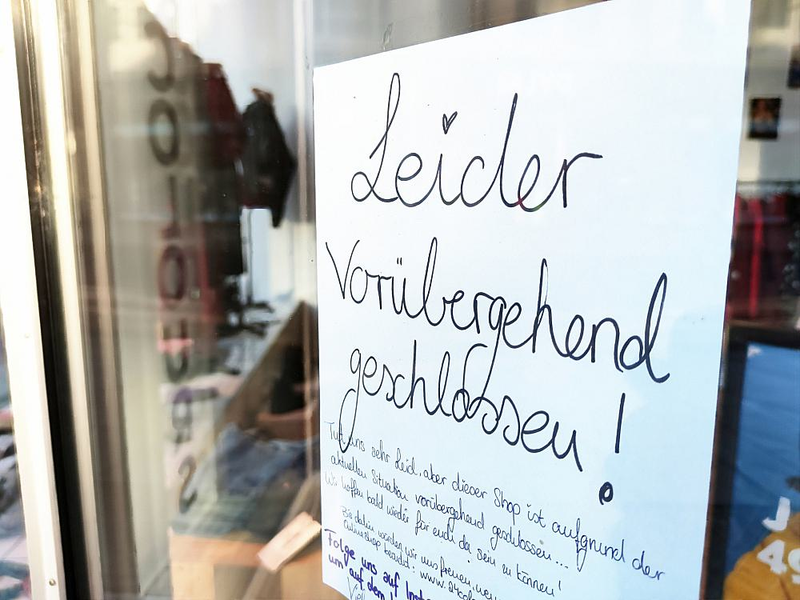 Leider
Vorübergehend
geschlossen!
Tut uns sehr Leid, aber dieser Shop ist aufgrund der
aktuellen Situation vorübergehend geschlossen...
Wir hoffen bald wieder für euch da sein zu können!
Bis dahin würden wir uns freuen, wenn
Onlineshop
Folge uns auf
um auf dem
J
49